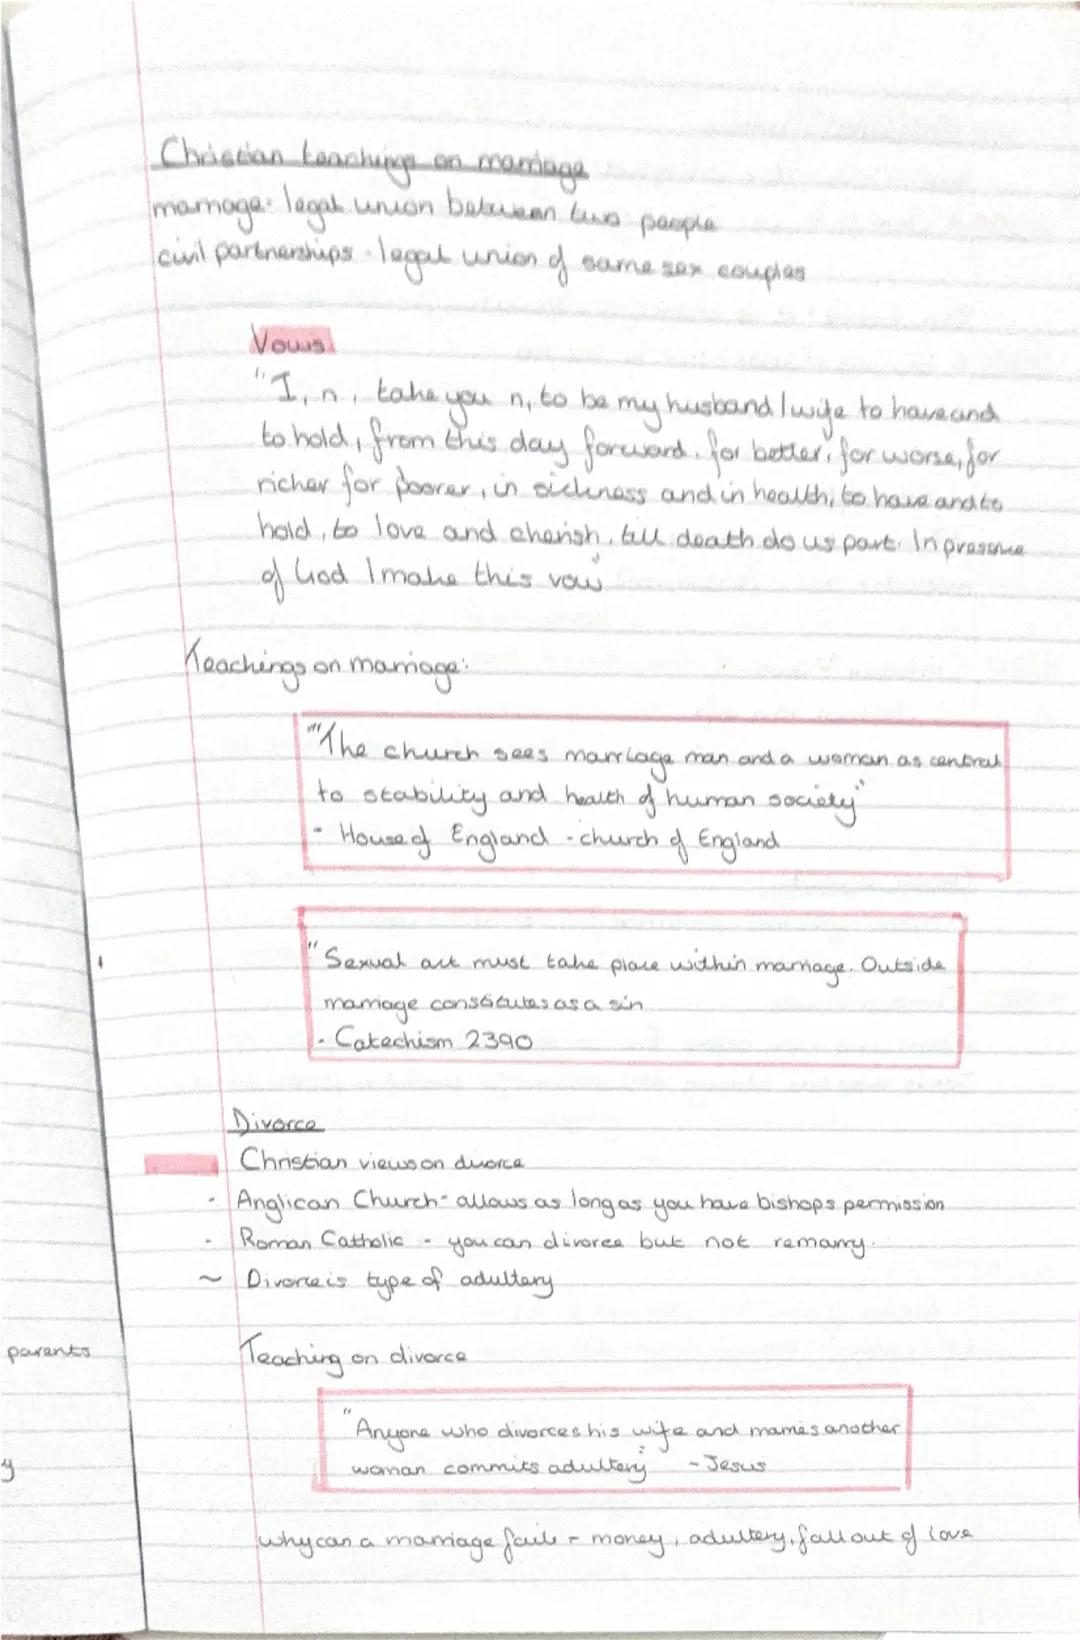 Christian teachings on marriage
marriage: legal union between two people
civil partnerships - legal union of same sex couples
Vows
"I, n, take you n, to be my husband / wife to have and
to hold, from this day forward. for better, for worse, for
richer for poorer, in sickness and in health, to have and to
hold, to love and cherish, till death do us part. In presence
of God I make this vow"
Teachings on marriage:
"The church sees marriage man and a woman as central
to stability and health of human society"
- House of England - church of England
"Sexual act must take place within marriage. Outside
marriage constitutes as a sin
- Catechism 2390
Divorce
Christian views on divorce
- Anglican Church - allows as long as you have bishops permission
- Roman Catholic - you can divorce but not remarry.
~ Divorce is type of adultery
parents
Teaching on divorce
"Anyone who divorces his wife and marries another
woman commits adultery" - Jesus
y
why can a marriage fail - money, adultery, fall out of love